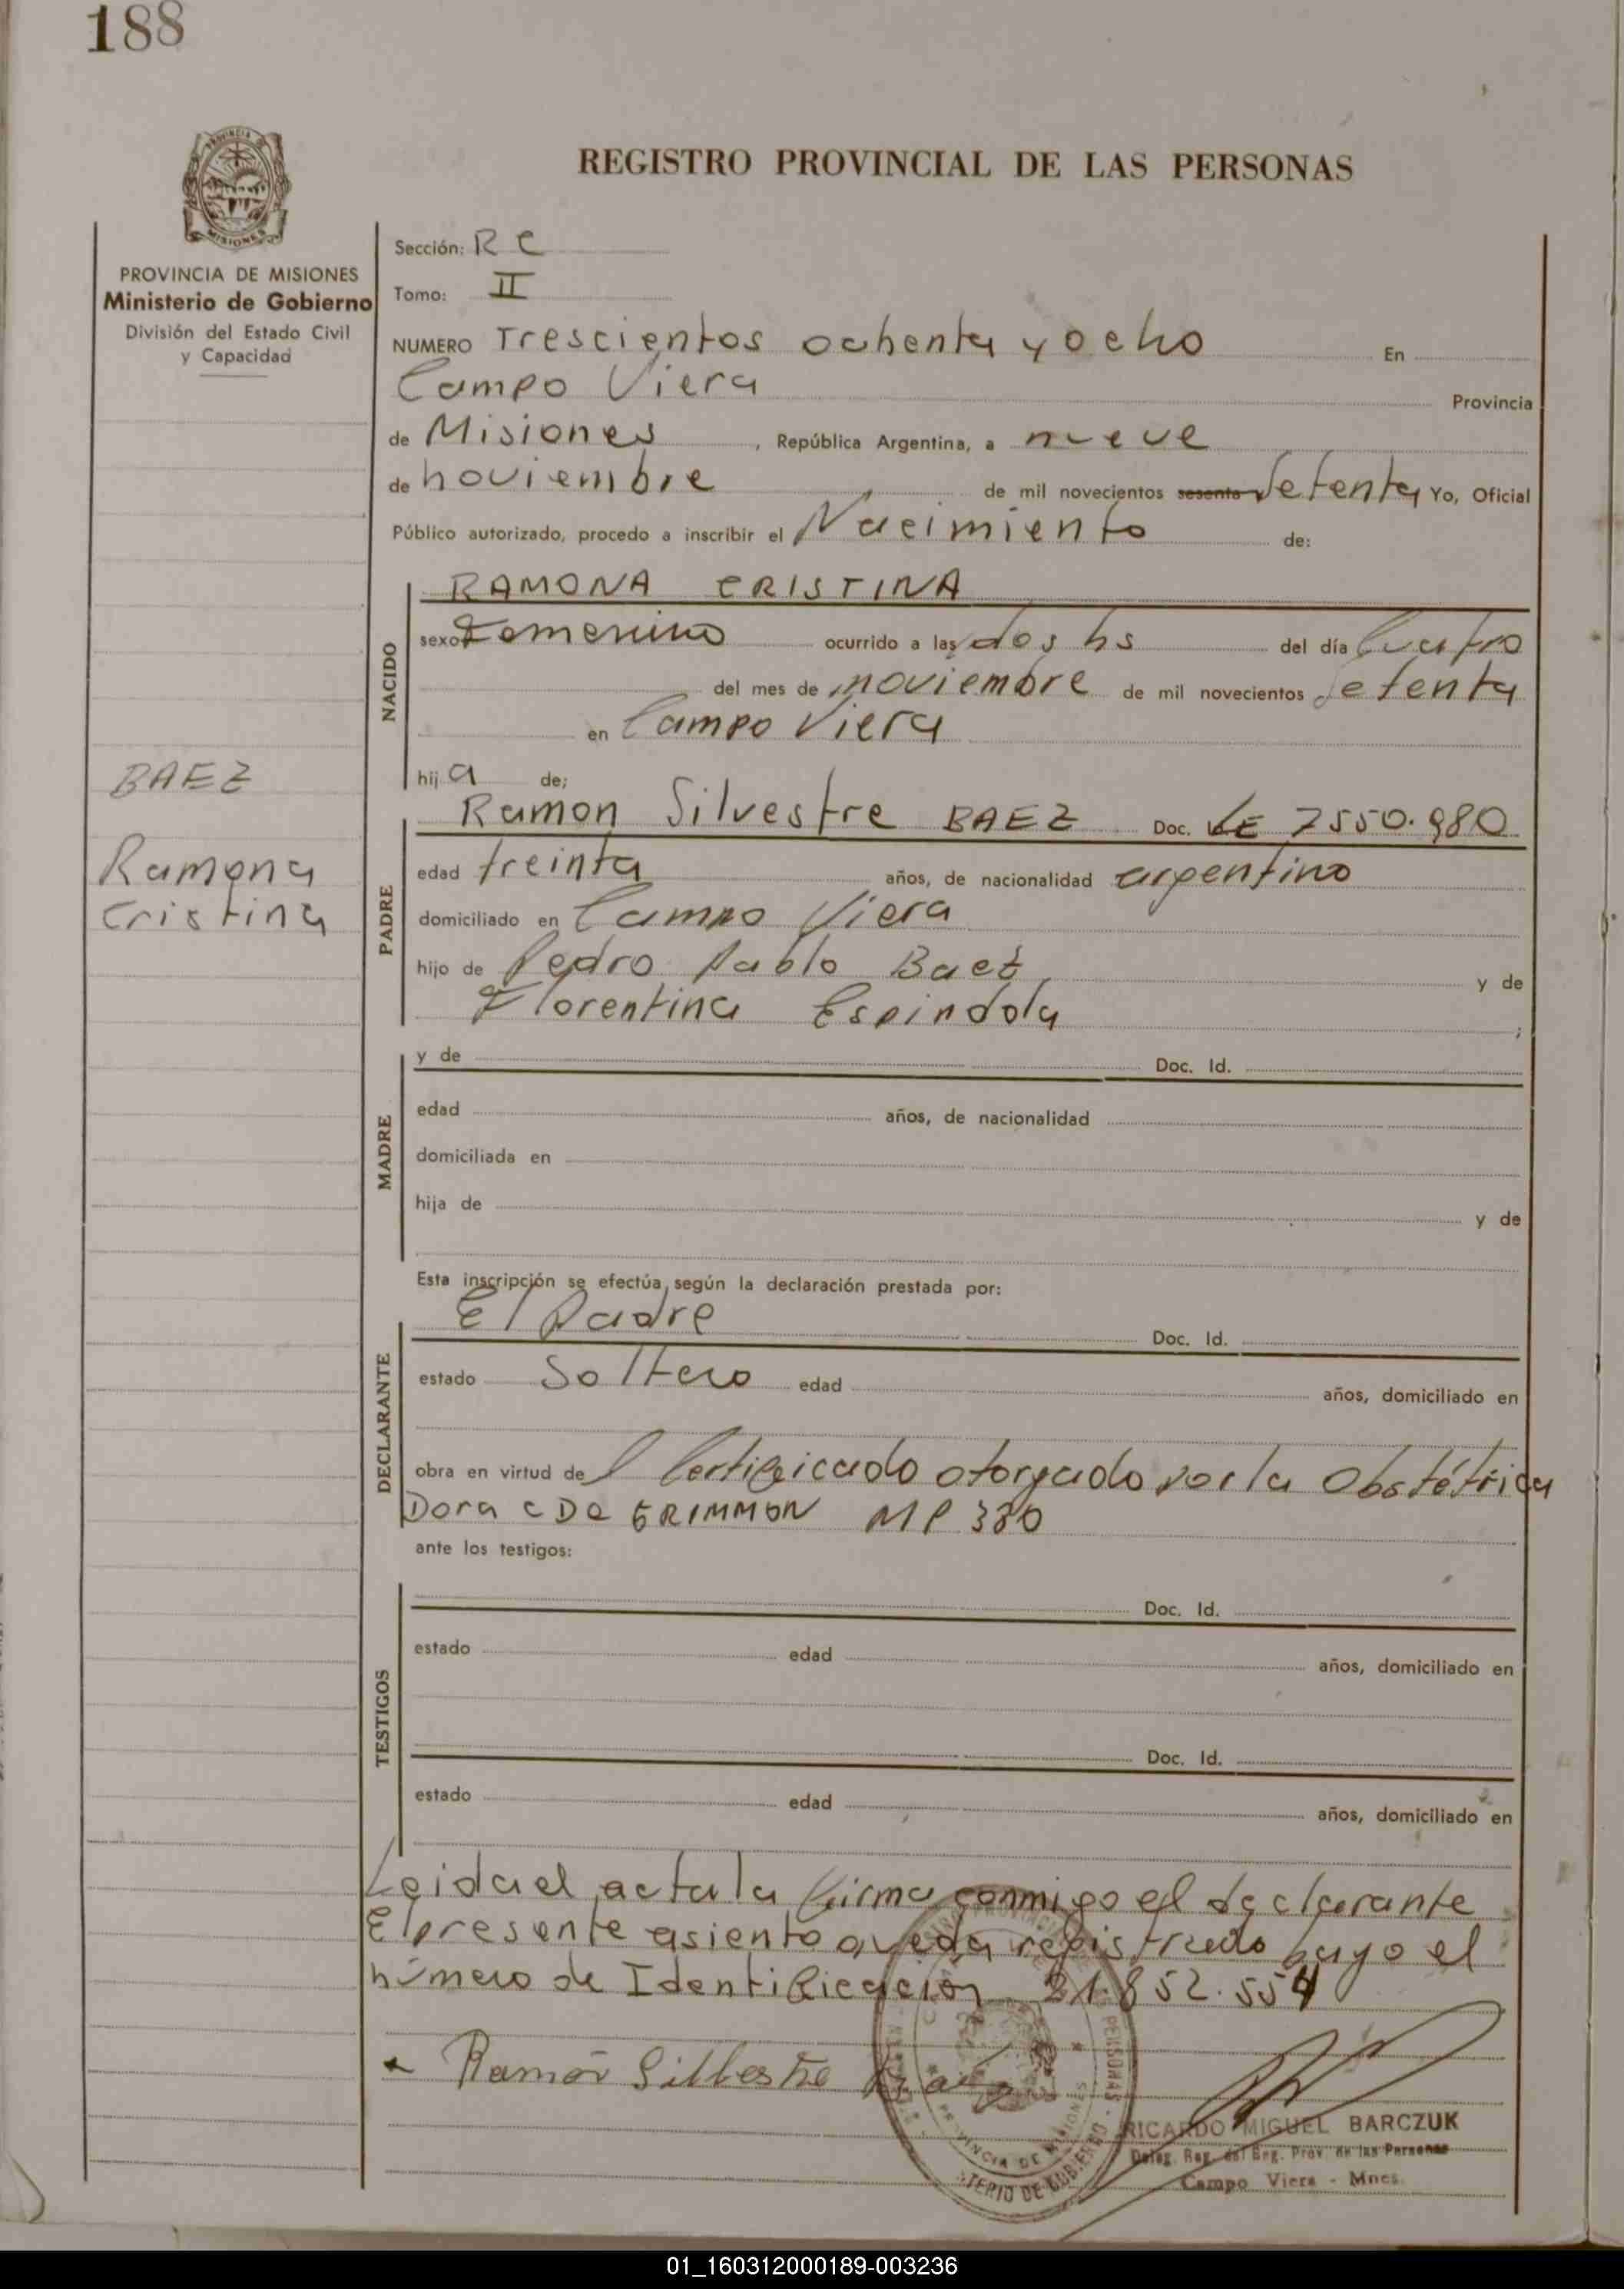 188
REGISTRO PROVINCIAL DE LAS PERSONAS
MISIONES
PROVINCIA DE MISIONES
Ministerio de Gobierno
División del Estado Civil
y Capacidad
Sección: R C
Tomo: II
NUMERO Trescientos ochenta y ocho En
Campo Viera Provincia
de Misiones, República Argentina, a nueve
de noviembre de mil novecientos sesenta Setenta Yo, Oficial
Público autorizado, procedo a inscribir el Nacimiento de:
NACIDO
RAMONA CRISTINA
sexo Femenino ocurrido a las dos hs del día Cuatro
del mes de noviembre de mil novecientos Setenta
en Campo Viera
hija de;
BAEZ
Ramona
Cristina
PADRE
Ramon Silvestre BAEZ Doc. LE 7550.980
edad treinta años, de nacionalidad argentino
domiciliado en Campo Viera
hijo de Pedro Pablo Baez y de
Florentina Espindola ;
MADRE
y de Doc. Id.
edad años, de nacionalidad
domiciliada en
hija de y de
Esta inscripción se efectúa, según la declaración prestada por:
DECLARANTE
El Padre Doc. Id.
estado Soltero edad años, domiciliado en
obra en virtud del Certificado otorgado por la Obstétrica
Dora C De GRIMMON MP 380
ante los testigos:
TESTIGOS
Doc. Id.
estado edad años, domiciliado en
Doc. Id.
estado edad años, domiciliado en
Leida el acta la firma conmigo el declarante
El presente asiento queda registrado bajo el
número de Identificación 21.852.554
Ramón Silbestre Baez
PROVINCIA DE MISIONES
RICARDO MIGUEL BARCZUK
Deleg. Reg. del Reg. Prov. de las Personas
Campo Viera - Mnes.
01_160312000189-003236